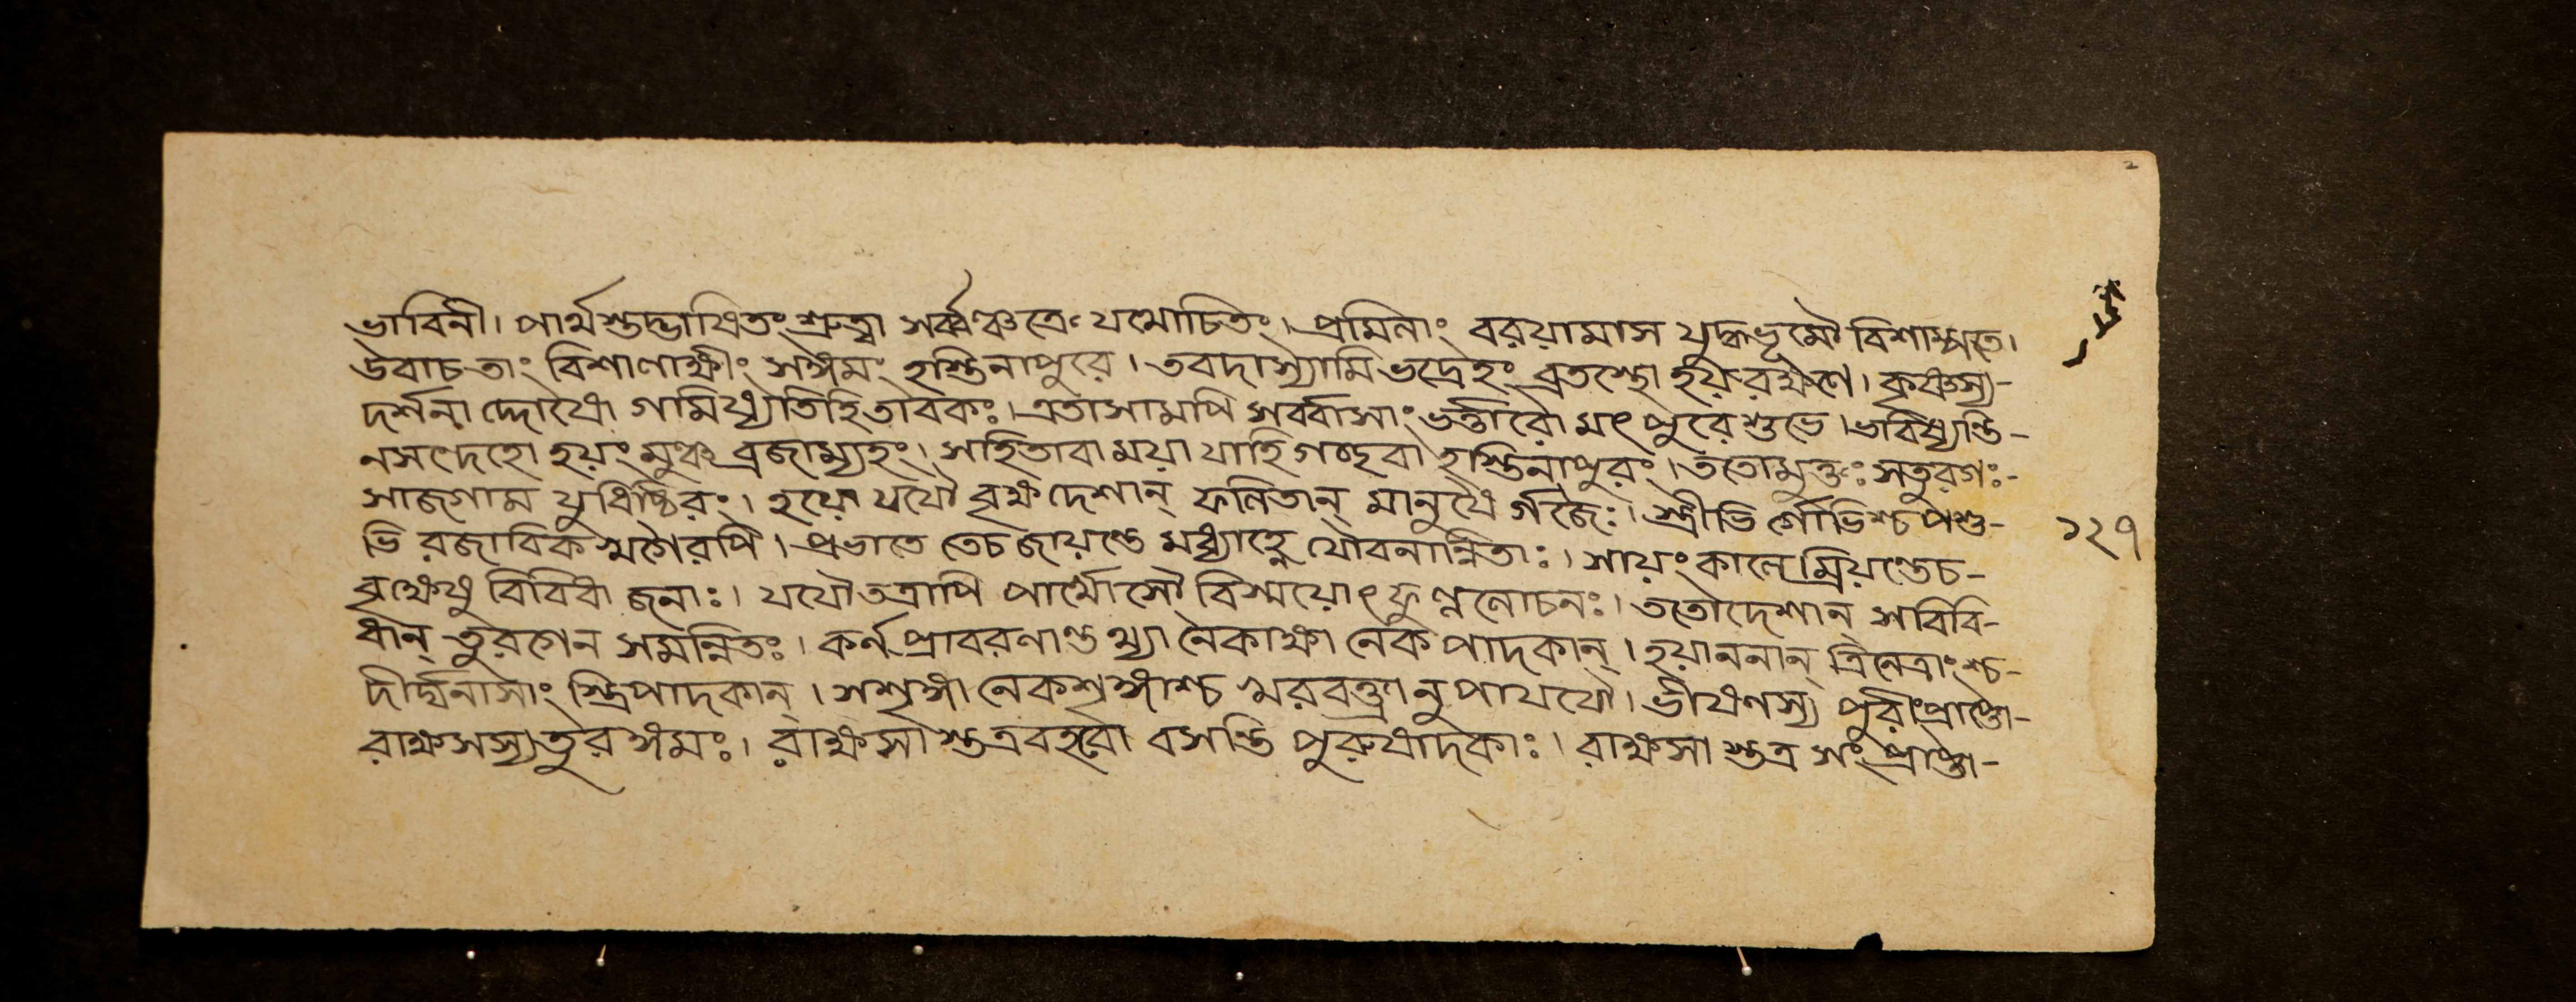 ভাবিনী। পার্থস্তদ্ভাষিতং শ্রুত্বা সর্ব্বঞ্চতত্র যথোচিতং। প্রমিলাং বরয়ামাস যুদ্ধভূমৌ বিশাম্পতে।
উবাচ তাং বিশালাক্ষীং সঙ্গমং হস্তিনাপুরে। তবদাস্যামি ভদ্রেহং ব্রতস্থো হয়রক্ষণে। কৃষ্ণস্য-
দর্শনা দ্দোষো গমিষ্যতিহি তাবকঃ। এতাসামপি সর্বাসাং ভর্ত্তারো মৎ পুরে শুভে। ভবিষ্যন্তি-
নসন্দেহো হয়ং মুঞ্চ ব্রজাম্যহং। সহিতাবা ময়া যাহি গচ্ছবা হস্তিনাপুরং। ততোমুক্তঃ সতুরগঃ-
সাজগাম যুধিষ্ঠিরং। হয়ো যযৌ বৃক্ষদেশান্ ফলিতান্ মানুষৈ র্গজৈঃ। স্ত্রীভি র্গোভিশ্চ পশু-
ভি রজাবিক খগৈরপি। প্রভাতে তেচ জায়ন্তে মধ্যাহ্নে যৌবনান্বিতাঃ। সায়ংকালে ম্রিয়ন্তেচ-
বৃক্ষেষু বিবিধা জনাঃ। যযৌতত্রাপি পার্থোসৌ বিস্ময়োৎফুল্ললোচনঃ। ততোদেশান্ সবিবি-
ধান্ তুরগেন সমন্বিতঃ। কর্নপ্রাবরণাংস্তথ্যা নৈকাক্ষা নেক পাদকান্। হয়াননান্ ত্রিনেত্রাংশ্চ-
দীর্ঘনাসাং স্ত্রিপাদকান্। সশৃঙ্গা নেকশৃঙ্গাশ্চ খরবক্ত্রা নুপাযযৌ। ভীষণস্য পুরীংপ্রাপ্তো-
রাক্ষসস্যতুরঙ্গমঃ। রাক্ষসাস্তত্রবহবো বসন্তি পুরুষাদকাঃ। রাক্ষসাস্তত্র সংপ্রাপ্তা-
১২৭